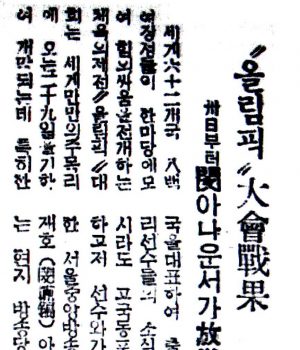 〃올림픽〃大會戰果
卅日부터 閔아나운서가 放
세게六十二개국 八백
여장정들이 한마당에모
여 힘의싸움을전개하는
체육의제전〃올림픽〃대
회는 세게만민의주목리
에 오는二十九일을기하
여 개막되는데 특히한
국을대표하여 출
리선수들의 소식
시라도 고국동포
하고저 선수와가
한 서울중앙방송
재호(閔載鎬) 아
는 현지 방송당